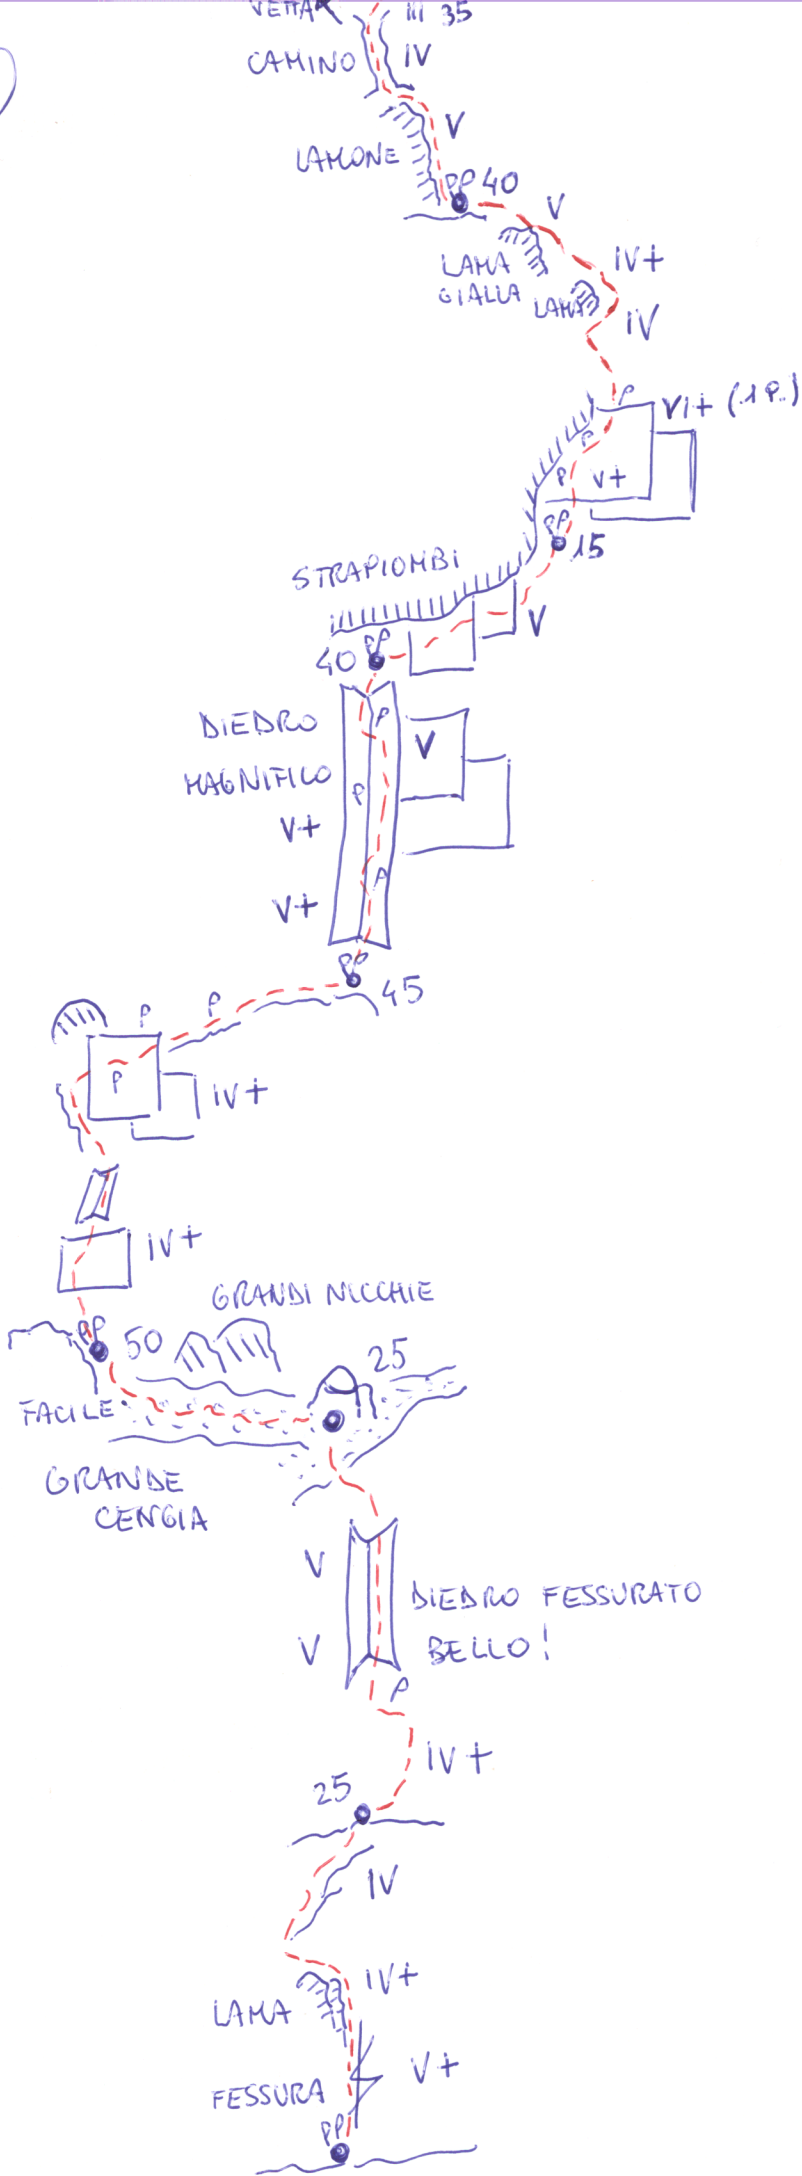 VETTA III 35
CAMINO IV
V
LAMONE
PP 40
V
LAMA
GIALLA
IV+
LAMA
IV
P
VI+ (1 P.)
P
P V+
PP
15
STRAPIOMBI
V
PP
40
DIEDRO
MAGNIFICO
P
V
P
V+
P
V+
PP
45
P P
P
IV+
IV+
GRANDI NICCHIE
PP
50
25
FACILE
GRANDE
CENGIA
V
DIEDRO FESSURATO
V
BELLO!
P
IV+
25
IV
IV+
LAMA
V+
FESSURA
PP